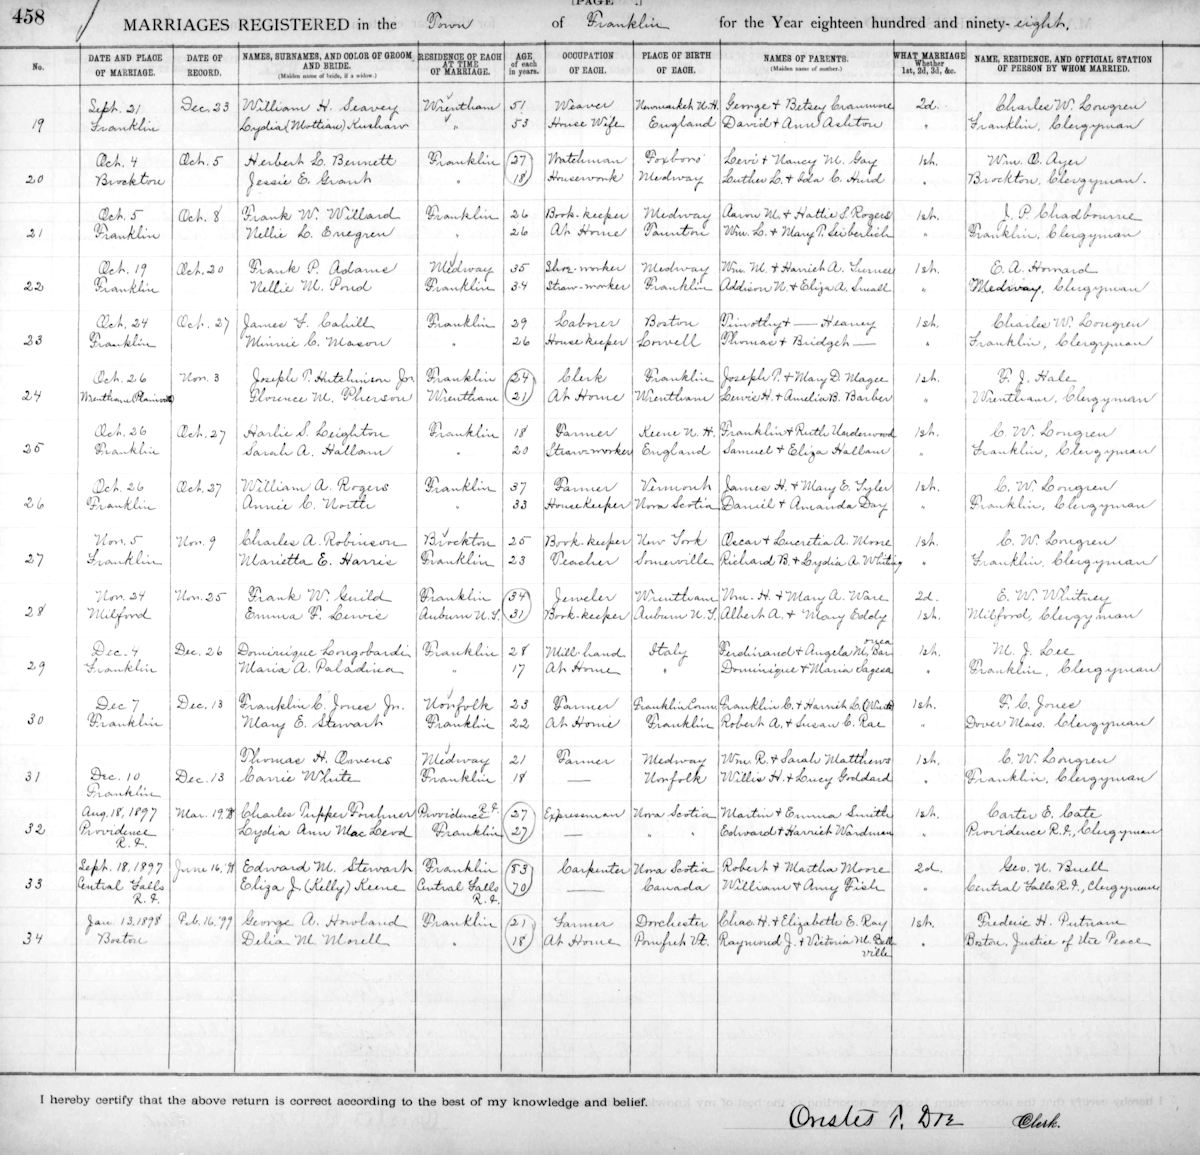 458
[PAGE .]
MARRIAGES REGISTERED in the Town of Franklin for the Year eighteen hundred and ninety-eight.
No. DATE AND PLACE OF MARRIAGE. DATE OF RECORD. NAMES, SURNAMES, AND COLOR OF GROOM AND BRIDE. (Maiden name of bride, if a widow.) RESIDENCE OF EACH AT TIME OF MARRIAGE. AGE of each in years. OCCUPATION OF EACH. PLACE OF BIRTH OF EACH. NAMES OF PARENTS. (Maiden name of mother.) WHAT MARRIAGE Whether 1st, 2d, 3d, &c. NAME, RESIDENCE, AND OFFICIAL STATION OF PERSON BY WHOM MARRIED.
Sept. 21 Dec. 23 William H. Seavey Wrentham 51 Weaver Newmarket N.H. George & Betsey Cranmore 2d. Charles W. Longren
19 Franklin Lydia (Mottian) Kushaw " 53 House Wife England David & Ann Ashton " Franklin, Clergyman
Oct. 4 Oct. 5 Herbert L. Bennett Franklin 27 Watchman Foxboro' Levi & Nancy M. Gay 1st. Wm. O. Ayer
20 Brockton Jessie E. Grant " 18 Housework Medway Luther L. & Ida C. Hurd " Brockton, Clergyman.
Oct. 5 Oct. 8 Frank W. Willard Franklin 26 Book-keeper Medway Aaron M. & Hattie S. Rogers 1st. J. P. Chadbourne
21 Franklin Nellie L. Enegren " 26 At Home Taunton Wm. L. & Mary T. Leiberlich " Franklin, Clergyman
Oct. 19 Oct. 20 Frank P. Adams Medway 35 Shoe-worker Medway Wm. M. & Harriet A. Turner 1st. E. A. Howard
22 Franklin Nellie M. Pond Franklin 34 Straw-worker Franklin Addison N. & Eliza A. Small " Medway, Clergyman
Oct. 24 Oct. 27 James F. Cahill Franklin 29 Laborer Boston Timothy & — Heaney 1st. Charles W. Longren
23 Franklin Minnie C. Mason " 26 House keeper Lowell Thomas & Bridget — " Franklin, Clergyman
Oct. 26 Nov. 3 Joseph T. Hutchinson Jr. Franklin 24 Clerk Franklin Joseph T. & Mary D. Magee 1st. F. J. Hale
24 Wrentham Plainville Florence M. Pherson Wrentham 21 At Home Wrentham Lewis H. & Amelia B. Barber " Wrentham, Clergyman
Oct. 26 Oct. 27 Harlie S. Leighton Franklin 18 Farmer Keene N. H. Franklin & Ruth Underwood 1st. C. W. Longren
25 Franklin Sarah A. Hallam " 20 Straw-worker England Samuel & Eliza Hallam " Franklin, Clergyman
Oct. 26 Oct. 27 William A. Rogers Franklin 37 Farmer Vermont James H. & Mary E. Tyler 1st. C. W. Longren
26 Franklin Annie C. North " 33 House Keeper Nova Scotia Daniel & Amanda Day " Franklin, Clergyman
Nov. 5 Nov. 9 Charles A. Robinson Brockton 25 Book-keeper New York Oscar & Lucretia A. Moore 1st. C. W. Longren
27 Franklin Marietta E. Harris Franklin 23 Teacher Somerville Richard B. & Lydia A. Whiting " Franklin, Clergyman
Nov. 24 Nov. 25 Frank W. Guild Franklin 34 Jeweler Wrentham Wm. H. & Mary A. Ware 2d. E. W. Whitney
28 Milford Emma F. Lewis Auburn N.Y. 31 Book-keeper Auburn N.Y. Albert A. & Mary Eddy 1st. Milford, Clergyman
Dec. 4 Dec. 26 Dominique Longobardi Franklin 28 Mill-hand Italy Ferdinand & Angela M. Bar- 1st. M. J. Lee
29 Franklin Maria A. Paladina " 17 At Home " Dominique & Maria Sagesa " Franklin, Clergyman
Dec 7 Dec. 13 Franklin C. Jones Jr. Norfolk 23 Farmer Franklin Conn. Franklin C. & Harriet L. 1st. F. C. Jones
30 Franklin Mary E. Stewart Franklin 22 At Home Franklin Robert A. & Susan C. Rae " Dover Mass. Clergyman
Thomas H. Owens Medway 21 Farmer Medway Wm. R. & Sarah Matthews 1st. C. W. Longren
31 Dec. 10 Dec. 13 Carrie White Franklin 18 — Norfolk Willis H. & Lucy Goddard " Franklin, Clergyman
Franklin
Aug. 18, 1897 Mar. 19 '98 Charles Tupper Forshner Providence R.I. 27 Expressman Nova Scotia Martin & Emma Smith 1st. Carter E. Cate
32 Providence Lydia Ann Mac Leod Franklin 27 — " " Edward & Harriet Wardman " Providence R.I., Clergyman
R.I.
Sept. 18, 1897 June 16, '98 Edward M. Stewart Franklin 83 Carpenter Nova Scotia Robert & Martha Moore 2d. Geo. N. Buell
33 Central Falls Eliza J. (Kelly) Keene Central Falls 70 — Canada William & Amy Fish " Central Falls R.I., Clergyman
R.I. R.I.
Jan. 13, 1898 Feb. 16, '99 George A. Howland Franklin 21 Farmer Dorchester Chas. H. & Elizabeth E. Ray 1st. Frederic H. Putnam
34 Boston Delia M. Morell " 18 At Home Pomfret Vt. Raymond J. & Victoria M. Bell- " Boston, Justice of the Peace
ville
I hereby certify that the above return is correct according to the best of my knowledge and belief.
Orestes T. Doe Clerk.